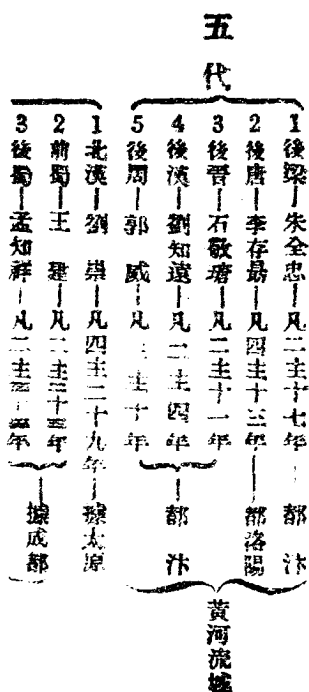 五代
1後梁—朱全忠—凡二主十七年—都汴
2後唐—李存勗—凡四主十三年—都洛陽
3後晉—石敬瑭—凡二主十一年
4後漢—劉知遠—凡二主四年
都汴
5後周—郭威—凡主十年
黃河流域
1北漢—劉崇—凡四主二十九年—據太原
2前蜀—王建—凡二主三十五年
3後蜀—孟知祥—凡二主年
據成都